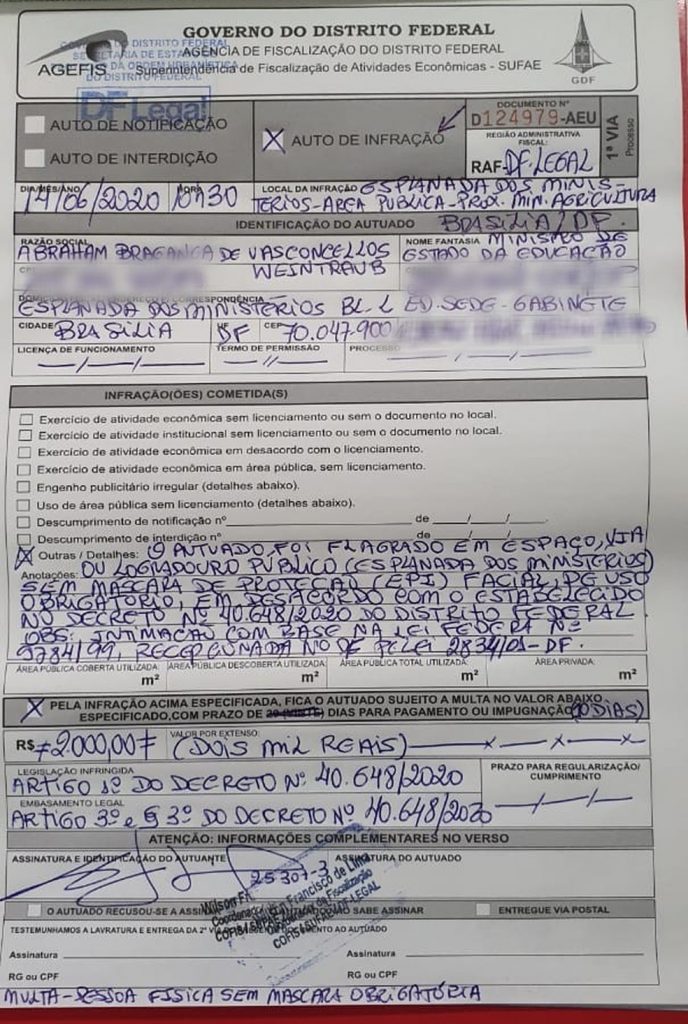 GOVERNO DO DISTRITO FEDERAL
AGÊNCIA DE FISCALIZAÇÃO DO DISTRITO FEDERAL
Superintendência de Fiscalização de Atividades Econômicas - SUFAE
AGEFIS
GDF
DO DISTRITO FEDERAL
DF Legal
AUTO DE NOTIFICAÇÃO
AUTO DE INTERDIÇÃO
X AUTO DE INFRAÇÃO
DOCUMENTO Nº
D124979-AEU
REGIÃO ADMINISTRATIVA FISCAL:
RAF-DF-LEGAL
1ª VIA
Processo
DIA/MÊS/ANO
14/06/2020
HORA
10h30
LOCAL DA INFRAÇÃO ESPLANADA DOS MINIS-
TÉRIOS-AREA PUBLICA-PROX. MIN. AGRICULTURA
IDENTIFICAÇÃO DO AUTUADO BRASILIA/DF.
RAZÃO SOCIAL
ABRAHAM BRAGANCA DE VASCONCELLOS
WEINTRAUB
NOME FANTASIA MINISTRO DE
ESTADO DA EDUCAÇÃO
ESPLANADA DOS MINISTÉRIOS BL. L ED. SEDE - GABINETE
CIDADE BRASILIA
UF DF
CEP 70.047.900
LICENÇA DE FUNCIONAMENTO
TERMO DE PERMISSÃO
PROCESSO
INFRAÇÃO(ÕES) COMETIDA(S)
Exercício de atividade econômica sem licenciamento ou sem o documento no local.
Exercício de atividade institucional sem licenciamento ou sem o documento no local.
Exercício de atividade econômica em desacordo com o licenciamento.
Exercício de atividade econômica em área pública, sem licenciamento.
Engenho publicitário irregular (detalhes abaixo).
Uso de área pública sem licenciamento (detalhes abaixo).
Descumprimento de notificação nº de / /
Descumprimento de interdição nº de / /
X Outras / Detalhes: O AUTUADO FOI FLAGRADO EM ESPAÇO, VIA
Anotações: OU LOGRADOURO PUBLICO (ESPLANADA DOS MINISTERIOS)
SEM MASCARA DE PROTEÇÃO (EPI) FACIAL, DE USO
OBRIGATÓRIO, EM DESACORDO COM O ESTABELECIDO
NO DECRETO Nº 40.648/2020 DO DISTRITO FEDERAL
OBS: INTIMAÇÃO COM BASE NA LEI FEDERA Nº
9784/99, RECEPCIONADA NO DF PELEI 2834/01-DF.
ÁREA PÚBLICA COBERTA UTILIZADA: m²
ÁREA PÚBLICA DESCOBERTA UTILIZADA: m²
ÁREA PÚBLICA TOTAL UTILIZADA: m²
ÁREA PRIVADA: m²
X PELA INFRAÇÃO ACIMA ESPECIFICADA, FICA O AUTUADO SUJEITO A MULTA NO VALOR ABAIXO
ESPECIFICADO, COM PRAZO DE 20 (VINTE) DIAS PARA PAGAMENTO OU IMPUGNAÇÃO (10 DIAS)
R$ 2.000,00
VALOR POR EXTENSO:
(DOIS MIL REAIS) x x x
LEGISLAÇÃO INFRINGIDA
ARTIGO 1º DO DECRETO Nº 40.648/2020
PRAZO PARA REGULARIZAÇÃO/
CUMPRIMENTO
EMBASAMENTO LEGAL
ARTIGO 3º e § 3º DO DECRETO Nº 40.648/2020
ATENÇÃO: INFORMAÇÕES COMPLEMENTARES NO VERSO
ASSINATURA E IDENTIFICAÇÃO DO AUTUANTE
25307-3
ASSINATURA DO AUTUADO
Francisco de Lima
O AUTUADO RECUSOU-SE A ASSINAR
SABE ASSINAR
ENTREGUE VIA POSTAL
TESTEMUNHAMOS A LAVRATURA E ENTREGA DA 2ª VIA AO AUTUADO
Assinatura
Assinatura
RG ou CPF
RG ou CPF
MULTA-PESSOA FISICA SEM MASCARA OBRIGATÓRIA